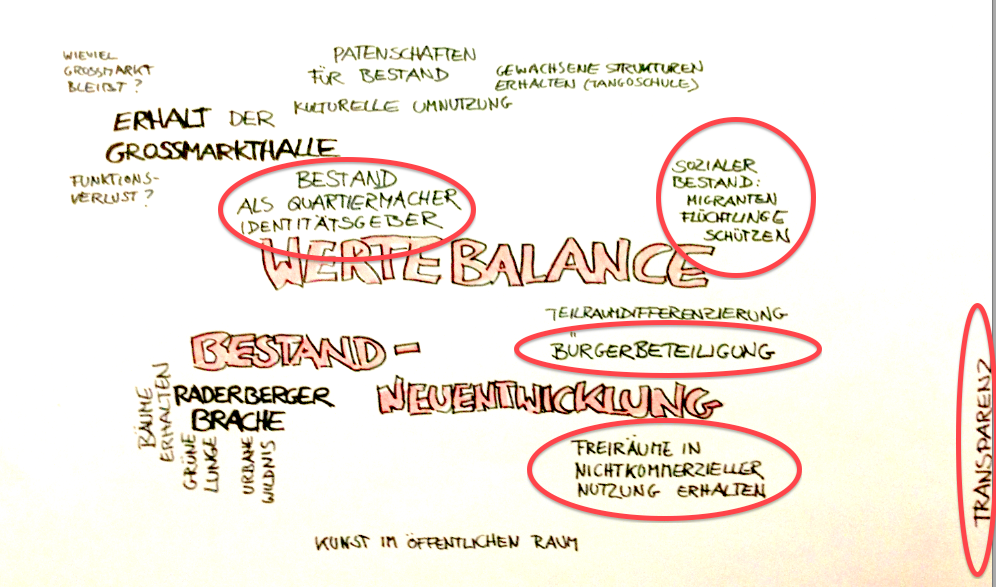 WIEVIEL
GROSSMARKT
BLEIBT?
PATENSCHAFTEN
FÜR BESTAND
GEWACHSENE STRUKTUREN
ERHALTEN (TANGOSCHULE)
KULTURELLE UMNUTZUNG
ERHALT DER
GROSSMARKTHALLE
FUNKTIONS-
VERLUST?
BESTAND
ALS QUARTIERMACHER
IDENTITÄTSGEBER
SOZIALER
BESTAND:
MIGRANTEN
FLÜCHTLINGE
SCHÜTZEN
WERTEBALANCE
TEILRAUMDIFFERENZIERUNG
BÜRGERBETEILIGUNG
BESTAND -
NEUENTWICKLUNG
RADERBERGER
BRACHE
BÄUME
ERHALTEN
GRÜNE
LUNGE
URBANE
WILDNIS
FREIRÄUME IN
NICHTKOMMERZIELLER
NUTZUNG ERHALTEN
TRANSPARENZ
KUNST IM ÖFFENTLICHEN RAUM